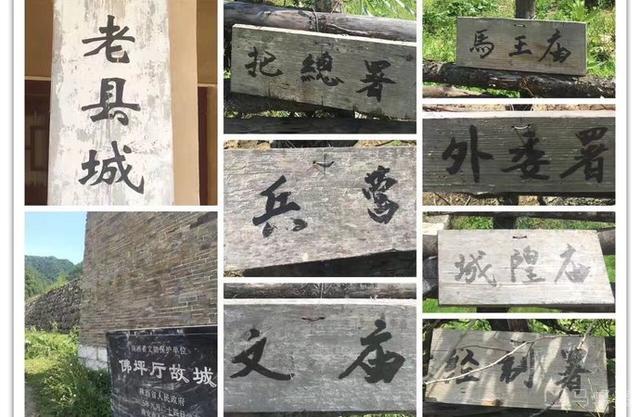 老县城
把總署
馬王庙
兵营
外委署
城隍庙
文庙
经制署
陕西省文物保护单位
佛坪厅故城
陕西省人民政府